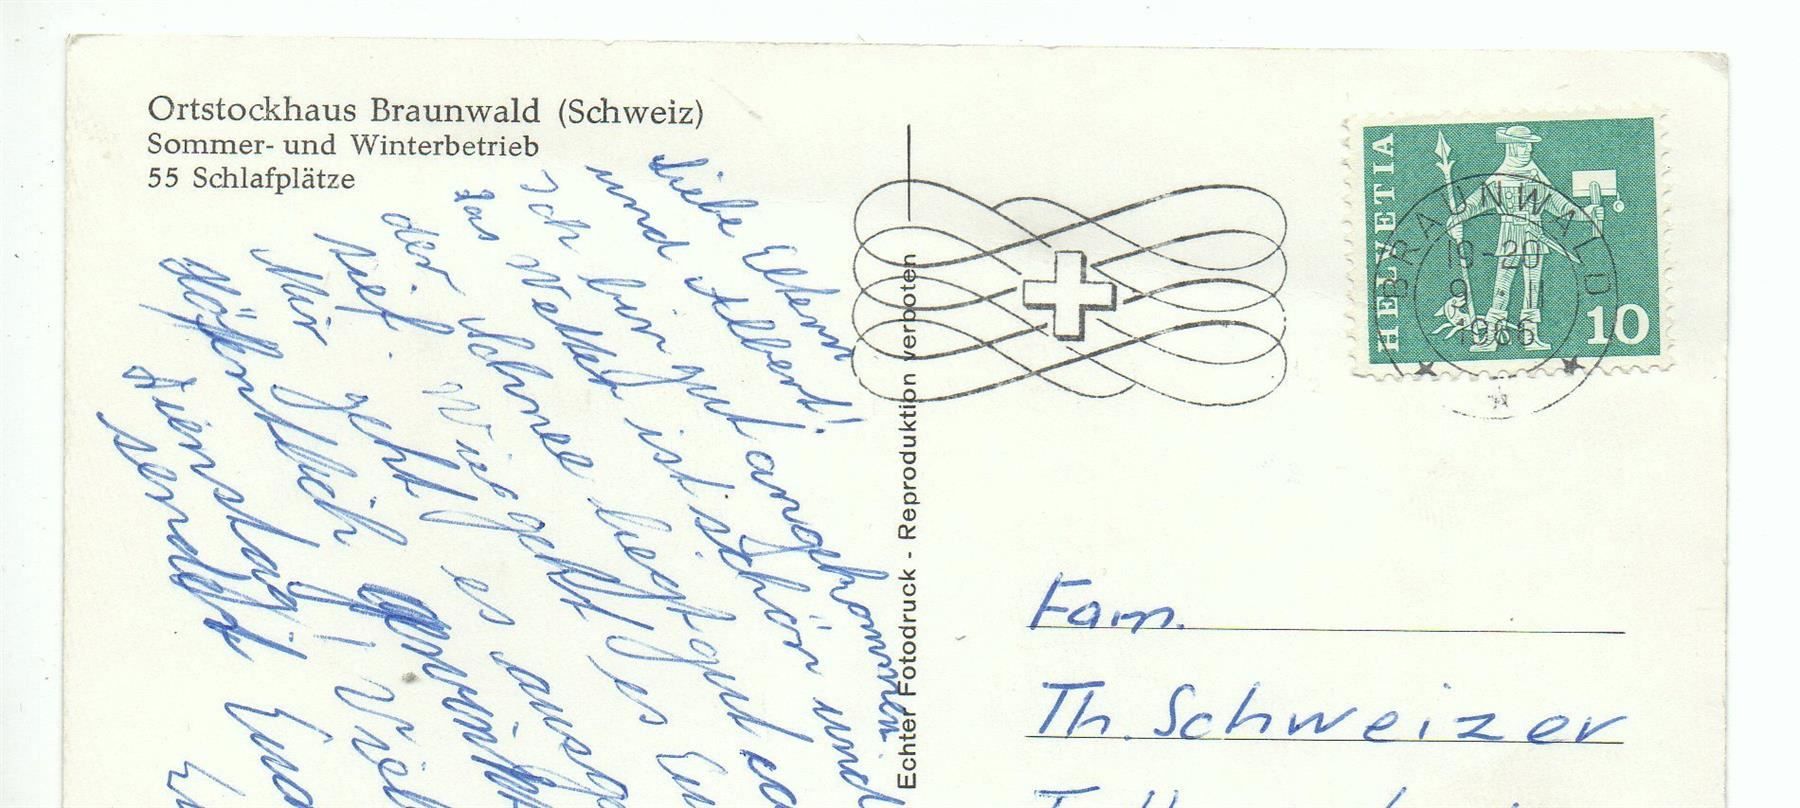 Ortstockhaus Braunwald (Schweiz)
Sommer- und Winterbetrieb
55 Schlafplätze
Liebe Eltern
und Albert!
Ich bin gut angekommen.
Das Wetter ist schön und
der Schnee liegt gut
tief. Wie geht es Eu
Mir geht es
Höffentlich
Dienstag! Viel
sendet Eu
Echter Fotodruck - Reproduktion verboten
HELVETIA
10
BRAUNWALD
19-20
9 · II
1966
Fam.
Th. Schweizer